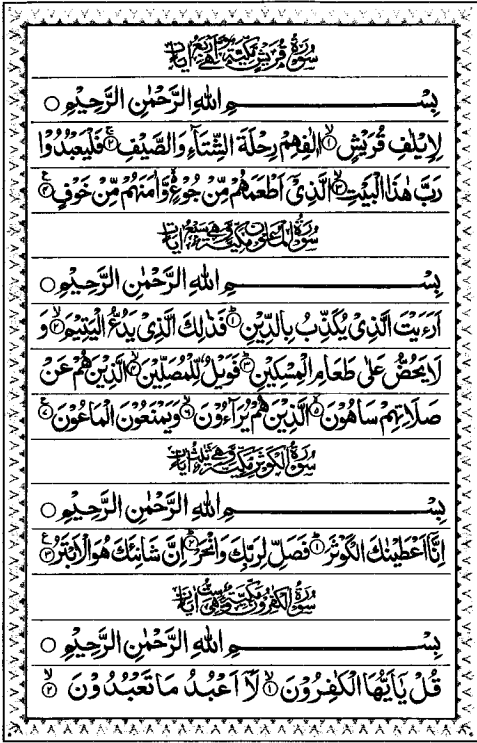 سُوْرَةُ قُرَيْشٍ مَكِّيَّةٌ وَّهِيَ اَرْبَعُ اٰيَاتٍ
بِسْمِ اللهِ الرَّحْمٰنِ الرَّحِيْمِ ○
لِاِيْلٰفِ قُرَيْشٍ ۙ﴿۱﴾ اٖلٰفِهِمْ رِحْلَةَ الشِّتَآءِ وَالصَّيْفِ ۚ﴿۲﴾ فَلْيَعْبُدُوْا
رَبَّ هٰذَا الْبَيْتِ ۙ﴿۳﴾ الَّذِيْٓ اَطْعَمَهُمْ مِّنْ جُوْعٍ ۙ وَّاٰمَنَهُمْ مِّنْ خَوْفٍ ﴿۴﴾
سُوْرَةُ الْمَاعُوْنِ مَكِّيَّةٌ وَّهِيَ سَبْعُ اٰيَاتٍ
بِسْمِ اللهِ الرَّحْمٰنِ الرَّحِيْمِ ○
اَرَءَيْتَ الَّذِيْ يُكَذِّبُ بِالدِّيْنِ ؕ﴿۱﴾ فَذٰلِكَ الَّذِيْ يَدُعُّ الْيَتِيْمَ ۙ﴿۲﴾ وَ
لَا يَحُضُّ عَلٰى طَعَامِ الْمِسْكِيْنِ ؕ﴿۳﴾ فَوَيْلٌ لِّلْمُصَلِّيْنَ ۙ﴿۴﴾ الَّذِيْنَ هُمْ عَنْ
صَلَاتِهِمْ سَاهُوْنَ ۙ﴿۵﴾ الَّذِيْنَ هُمْ يُرَآءُوْنَ ۙ﴿۶﴾ وَيَمْنَعُوْنَ الْمَاعُوْنَ ﴿۷﴾
سُوْرَةُ الْكَوْثَرِ مَكِّيَّةٌ وَّهِيَ ثَلٰثُ اٰيَاتٍ
بِسْمِ اللهِ الرَّحْمٰنِ الرَّحِيْمِ ○
اِنَّآ اَعْطَيْنٰكَ الْكَوْثَرَ ؕ﴿۱﴾ فَصَلِّ لِرَبِّكَ وَانْحَرْ ؕ﴿۲﴾ اِنَّ شَانِئَكَ هُوَ الْاَبْتَرُ ﴿۳﴾
سُوْرَةُ الْكٰفِرُوْنَ مَكِّيَّةٌ وَّهِيَ سِتُّ اٰيَاتٍ
بِسْمِ اللهِ الرَّحْمٰنِ الرَّحِيْمِ ○
قُلْ يٰٓاَيُّهَا الْكٰفِرُوْنَ ۙ﴿۱﴾ لَآ اَعْبُدُ مَا تَعْبُدُوْنَ ۙ﴿۲﴾